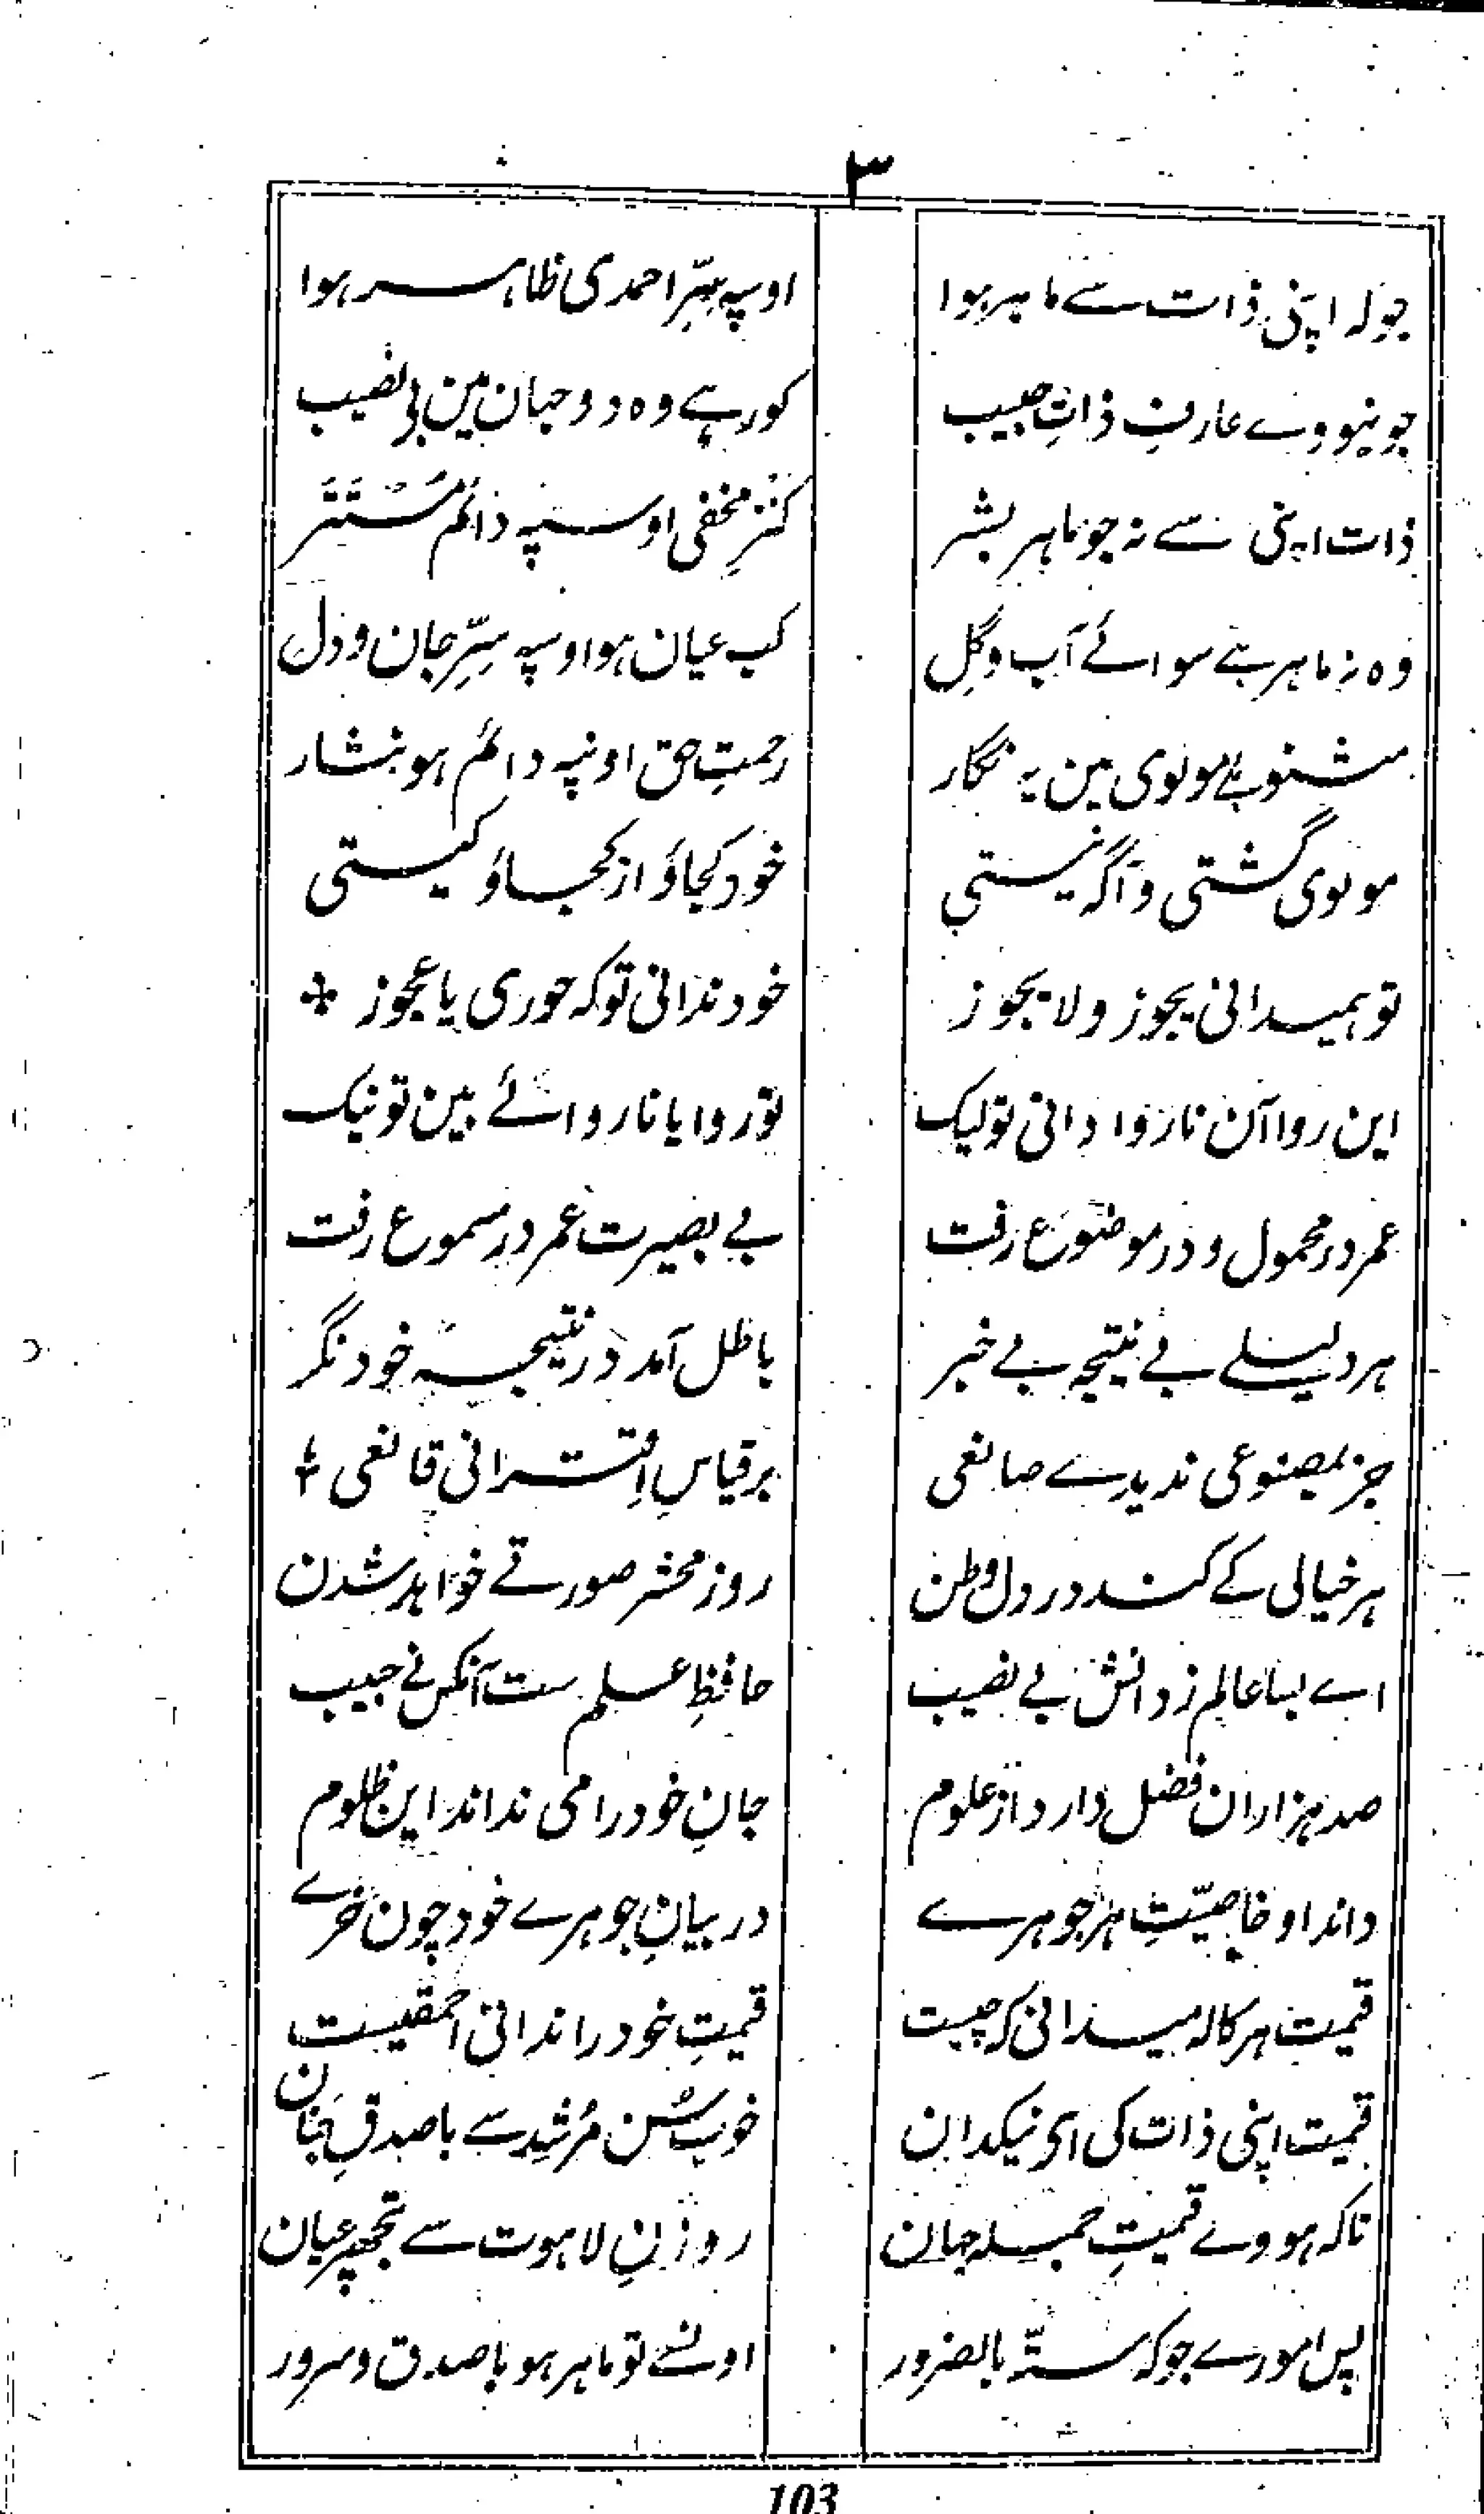 ۳
جو نہ اپنی ذات سے ماہر ہوا اوسپہ سِرّ احمدی ظاہر ہوا
جو نہووے عارفِ ذاتِ حبیب کور ہے وہ دو جہان مین بی نصیب
ذات اپنی سے نہ جو ماہر بشر کنزِ مخفی اوسپہ دائم مُسْتَتَر
وہ نہ ماہر ہے سوائے آب و گِل کب عیان ہو اوسپہ سِرِّ جان و دل
مثنوی مولوی مین یہ نگار رحمتِ حق اونپہ دائم ہو نثار
مولوی گشتی و آگہ نیستی خود کجاؤ از کجاؤ کیستی
تو ہمیدانی یجوز و لا یجوز خود ندانی تو کہ حوری یا عجوز
این روا آن ناروا دانی تو لیک تو روا یا ناروائے بین تو نیک
عمر در محمول و در موضوع رفت بے بصیرت عمر در مسموع رفت
ہر دلیلے بے نتیجہ بے خبر باطل آمد در نتیجہ خود نگر
جز بمصنوعی ندیدے صانعی بر قیاسِ اِقترانی قانعی
ہر خیالی کے کند در دل وطن روز محشر صورتے خواہد شدن
اے بسا عالم ز دانش بے نصیب حافظِ علم ست آنکس نے حبیب
صد ہزاران فضل دارد از علوم جانِ خود را می نداند این ظلوم
داند او خاصیّتِ ہر جوہرے در بیانِ جوہرے خود چون خرے
قیمت ہر کالہ میدانی کہ چیست قیمتِ خود را ندانی احمقیست
قیمت اپنی ذات کی ای نیکدان خوب سُن مُرشِد سے با صدقِ جَنان
تاکہ ہووے قیمتِ جملہ جہان روزنِ لاہوت سے تجھپر عیان
پس امورے جو کہ ستّہ بالضرور اونسے تو ماہر ہو با صدق و سرور
103